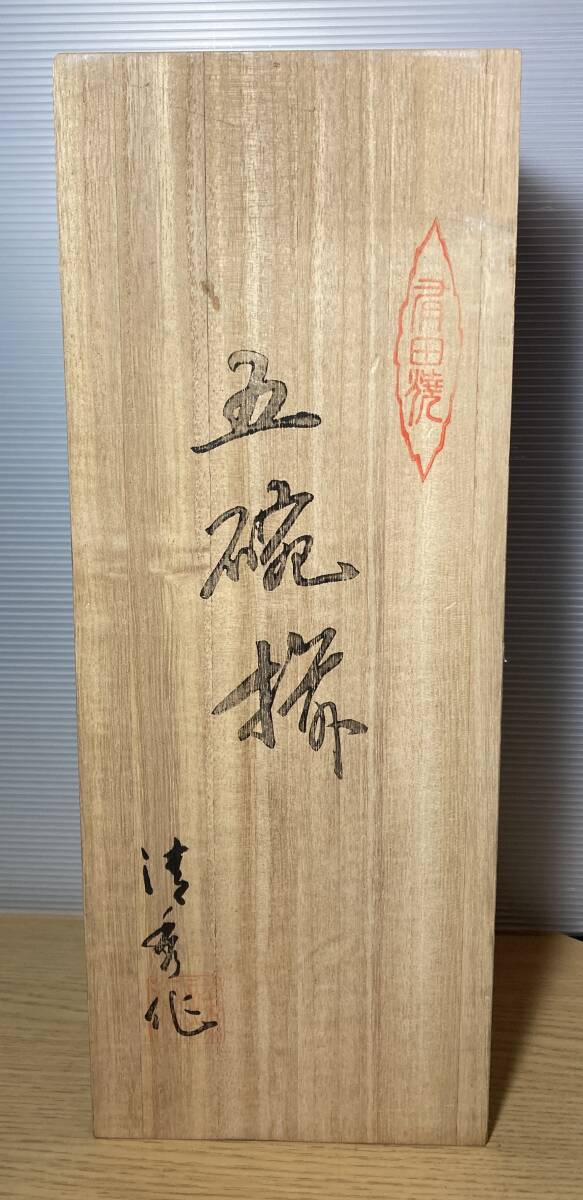 有田焼
五碗揃
清秀作